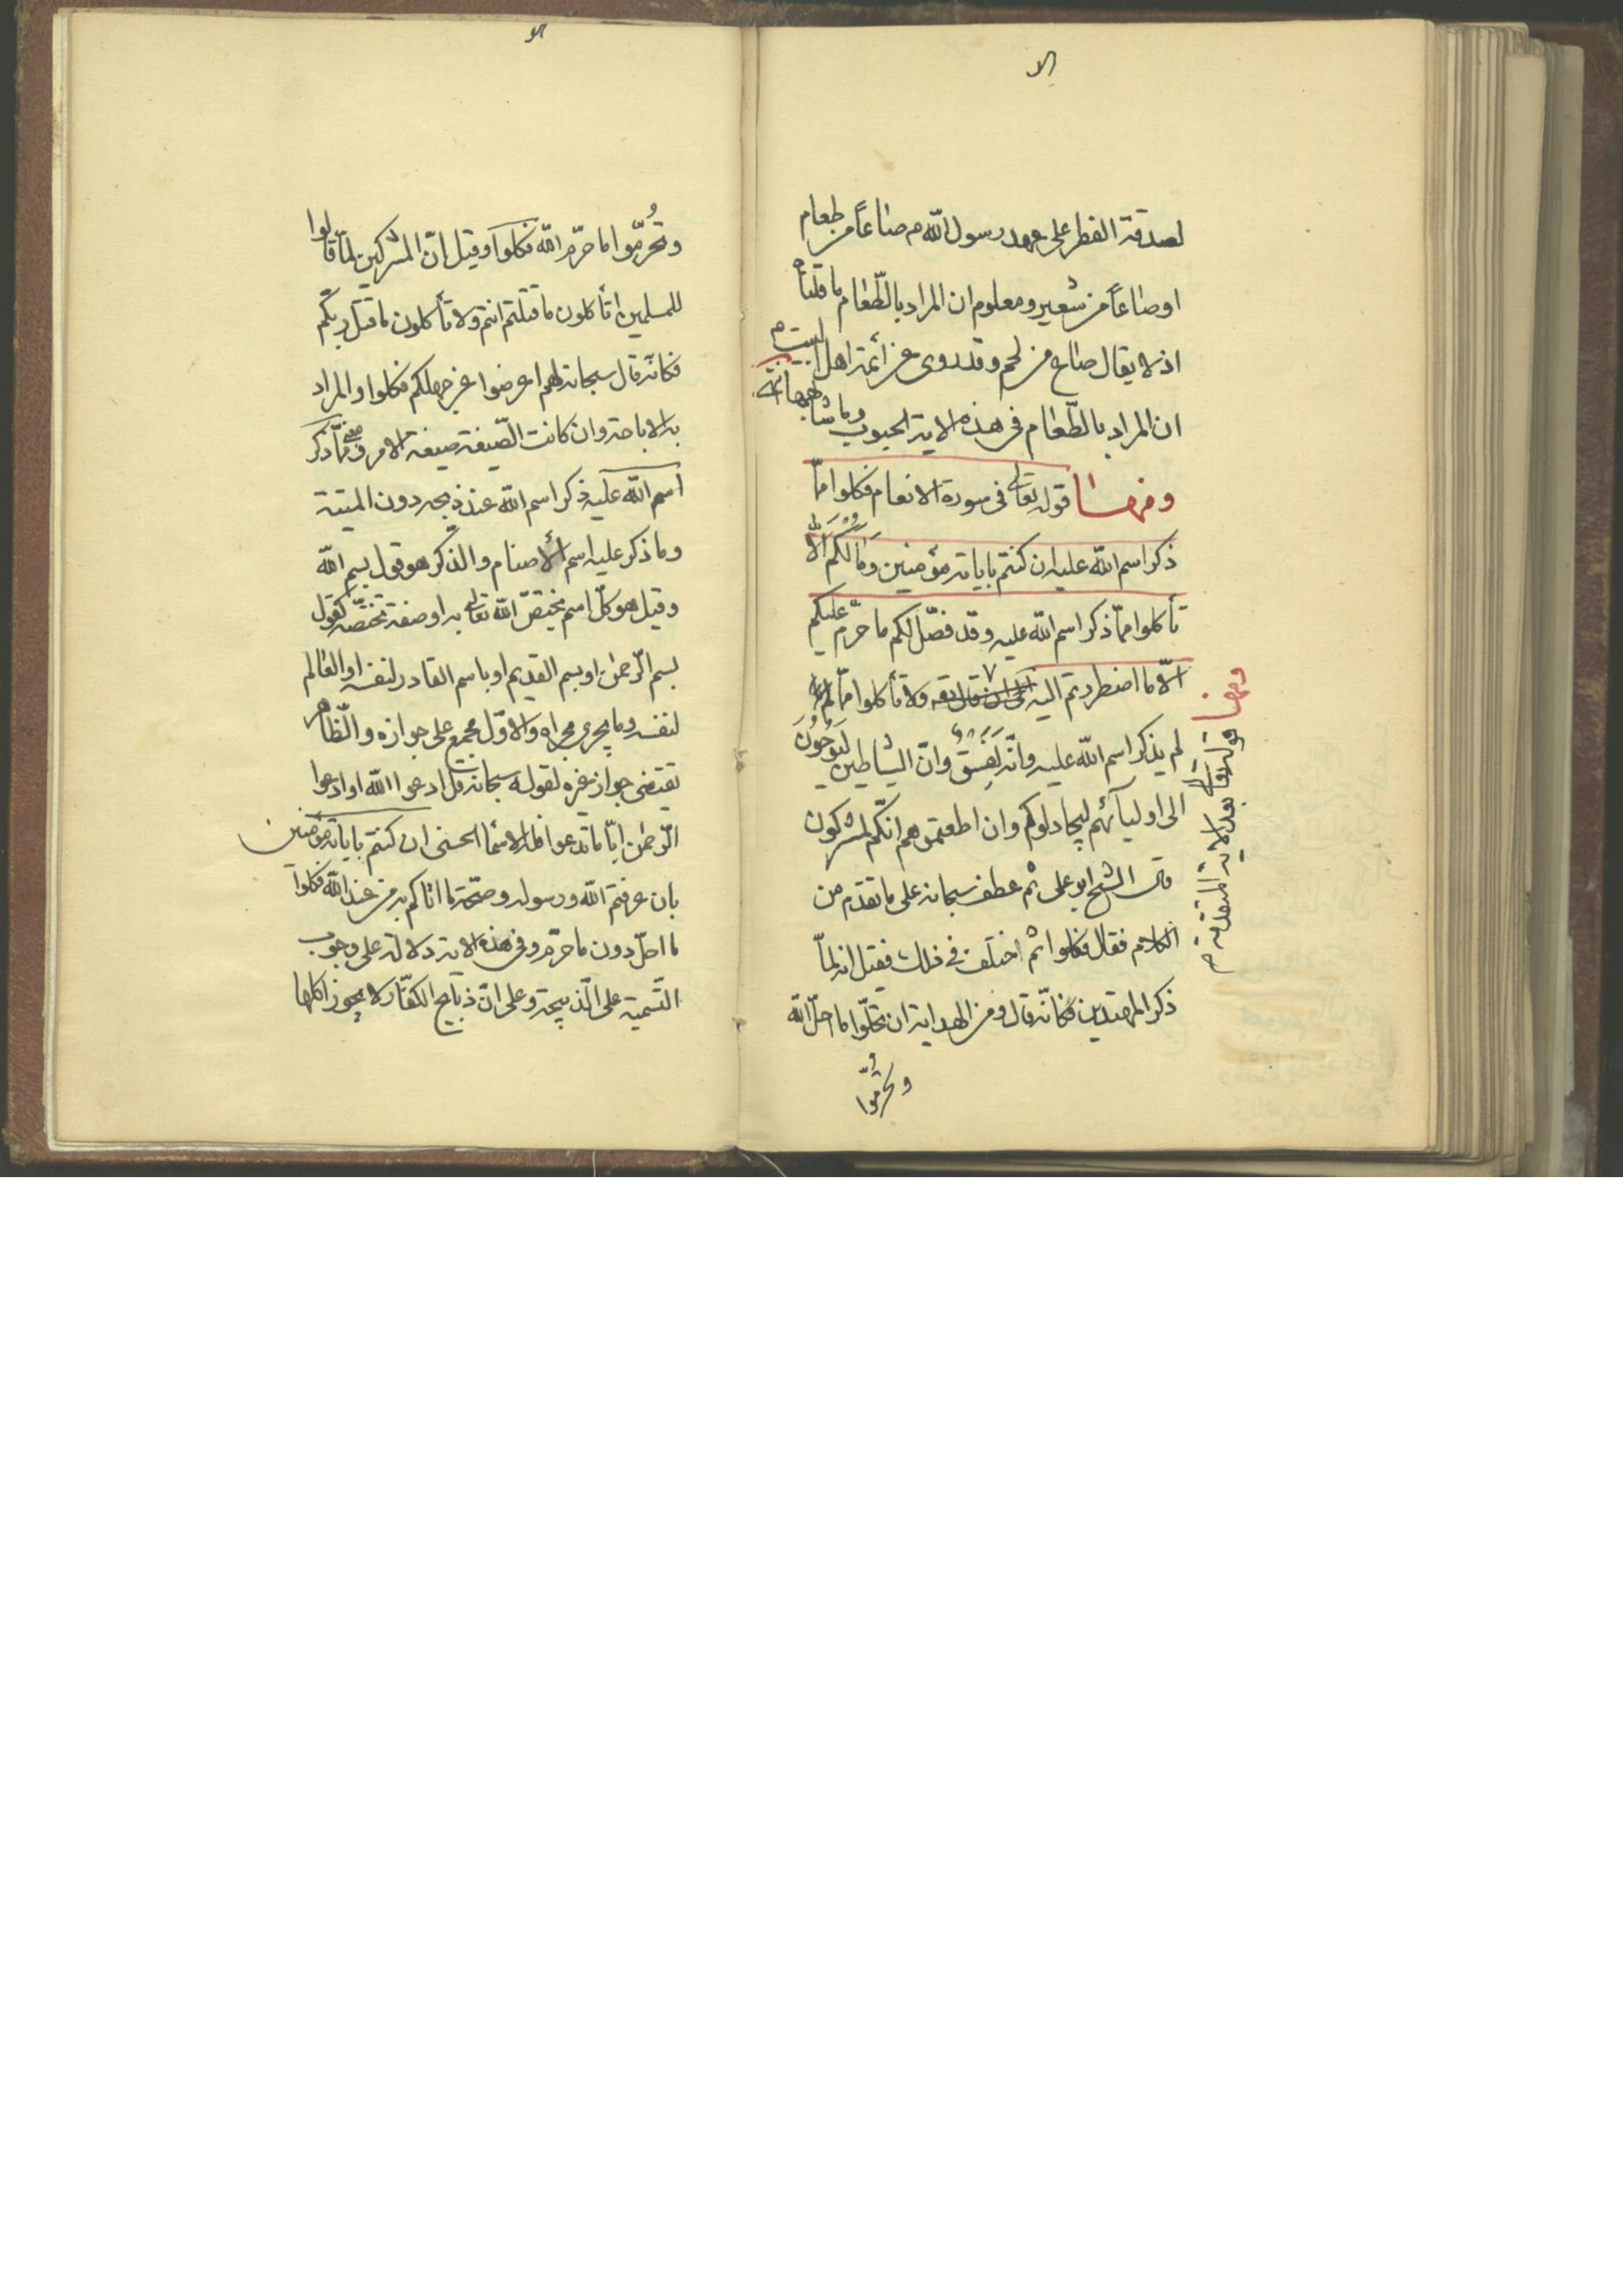 لصدقة الفطر على عهد رسول الله م صاعاً من طعام
او صاعاً من شعير ومعلوم ان المراد بالطّعام ما قلناه
اذ لا يقال صاع من لحم وقد روى عن ائمة اهل البيت م
ان المراد بالطّعام فى هذه الاية الحبوب وما شابهها
ومنها قوله تعالى فى سورة الانعام فكلوا ممّا
ذكر اسم الله عليه ان كنتم باياته مؤمنين وَمَا لَكُمْ اَلّا
تأكلوا ممّا ذكر اسم الله عليه وقد فصّل لكم ما حرّم عليكم
الّا ما اضطررتم اليه ولا تأكلوا ممّا
لم يذكر اسم الله عليه وانّه لَفِسْقٌ وانّ الشياطين لَيُوحُونَ
الى اوليآئهم ليجادلوكم وان اطعتموهم انّكم لمشركون
قال الشيخ ابو على ثم عطف سبحانه على ما تقدم من
الكلام فقال فكلوا ثم اختلف فى ذلك فقيل انه لمّا
ذكر المهتدين فكانّه قال ومن الهداية ان تحلّوا ما احلّ الله
وتحرّموا
ومنها قوله تعالى بعد الاية المتقدمة م
وتُحرّموا ما حرّم الله فكلوا وقيل انّ المشركين لمّا قالوا
للمسلمين اتأكلون ما قتلتم انتم ولا تأكلون ما قتل ربّكم
فكانّه قال سبحانه لهم اعرضوا عن جهلكم فكلوا والمراد
به الاباحة وان كانت الصّيغة صيغة الامر ومعنى ممّا ذكر
اسم الله عليه ذكر اسم الله عند ذبحه دون الميتة
وما ذكر عليه اسم الأصنام والذّكر هو قول بسم الله
وقيل هو كلّ اسم يختصّ الله تعالى به او صفة تختصّه كقول
بسم الرّحمن او بسم القديم او باسم القادر لنفسه او العالم
لنفسه وما يجرى مجراه والاوّل مجمع على جوازه والظّاهر
يقتضى جواز غيره لقوله سبحانه قل ادعوا الله او ادعوا
الرّحمن ايّا ما تدعوا فله الاسمآ الحسنى ان كنتم باياته مؤمنين
بان عرفتم الله ورسوله وصحّة ما اتاكم به من عند الله فكلوا
ما احلّ دون ما حرّم وفى هذه الاية دلالة على وجوب
التّسمية على الذّبيحة وعلى انّ ذبايح الكفّار لا يجوز اكلها